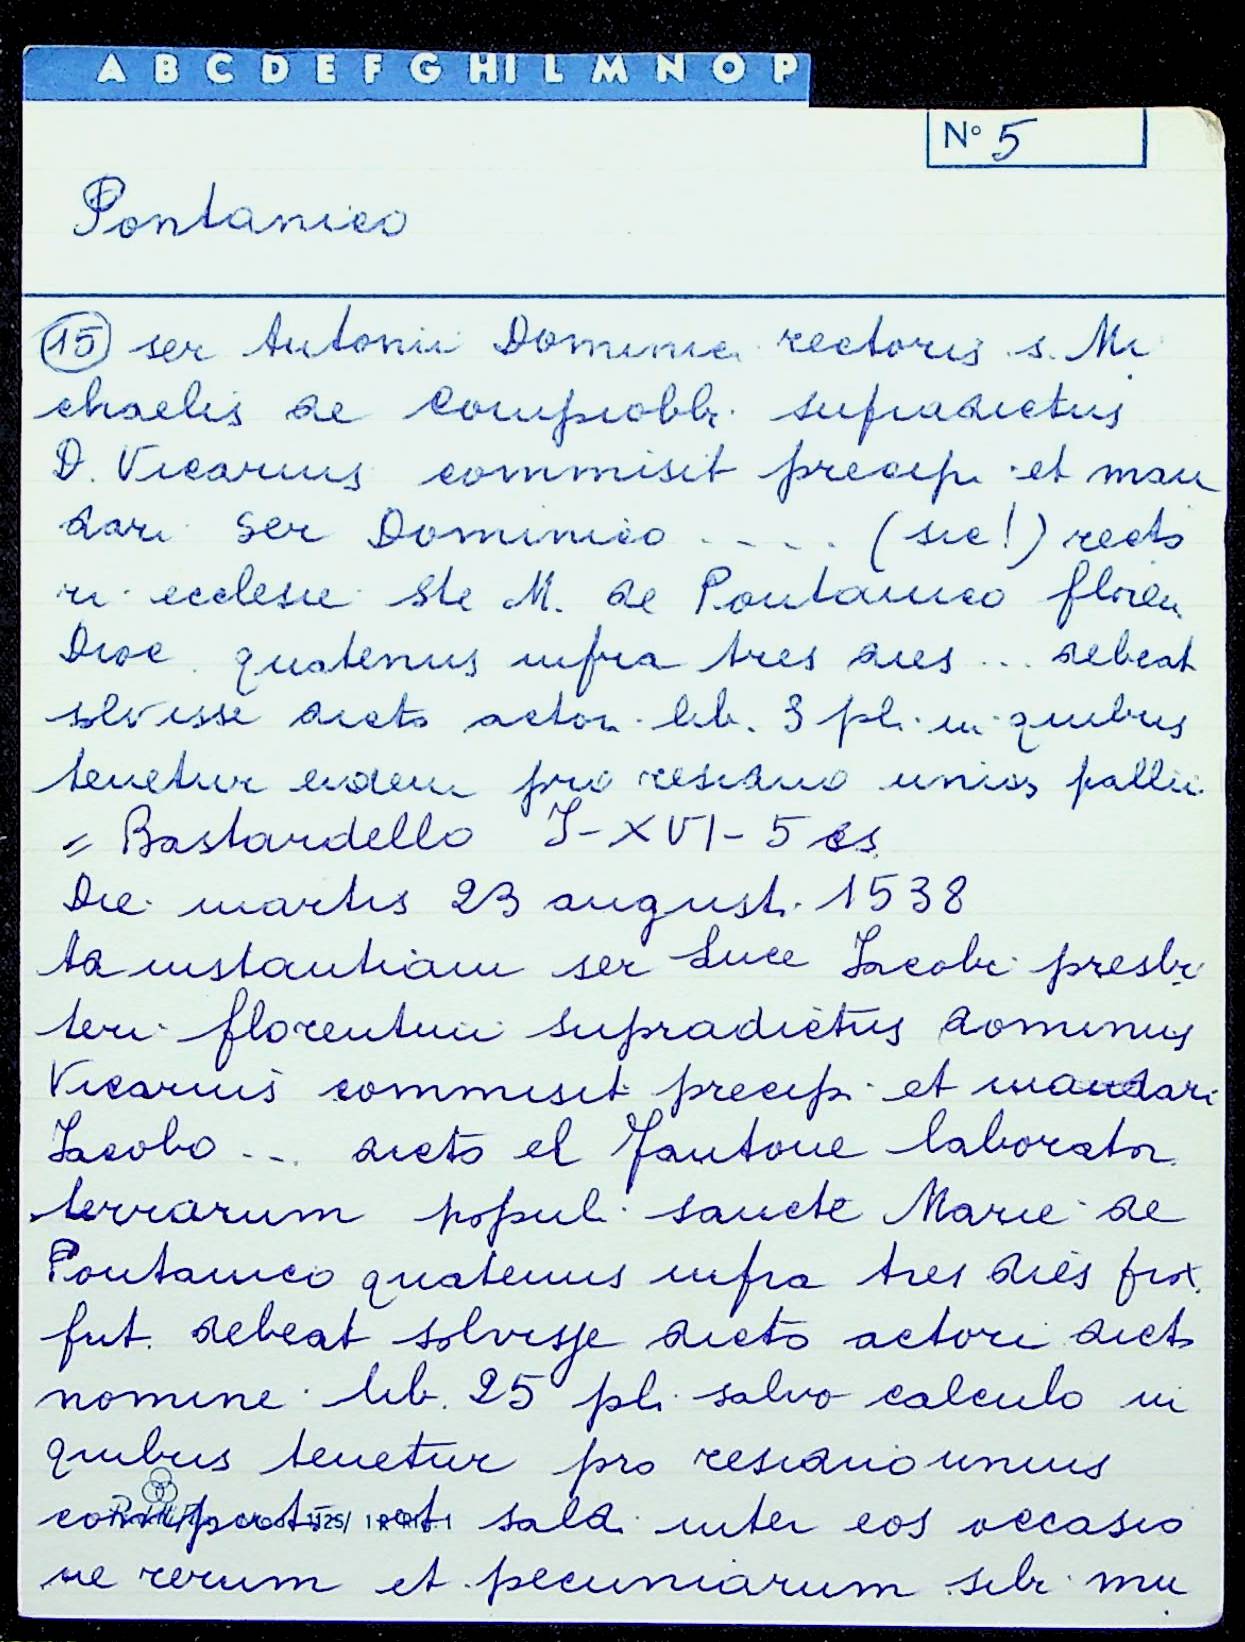 A B C D E F G HI L M N O P
N° 5
Pontanico
15 ser Antonii Dominici rectoris s. Mi
chaelis de Compiobbi supradictus
D. Vicarius commisit precipi et man
dari Ser Dominico .... (sic!) recto
ri ecclesie Ste M. de Pontanico floren.
Dioc. quatenus infra tres dies ... debeat
solvisse dicto actori lib. 3 pli. in quibus
tenetur eidem pro residuo unios pallii.
= Bastardello I-XVI-5 cs
Die martis 23 augusti 1538
Ad instantiam ser Luce Iacobi presbi
teri florentini supradictus dominus
Vicarius commisit precipi et mandari
Iacobo ... dicto el Fantone laborator.
terrarum populi sancte Marie de
Pontanico quatenus infra tres dies prox.
fut. debeat solvisse dicto actori dicto
nomine lib. 25 pli. salvo calculo in
quibus tenetur pro residuo unius
computi et sald. inter eos occasio
ne rerum et pecuniarum sibi mu